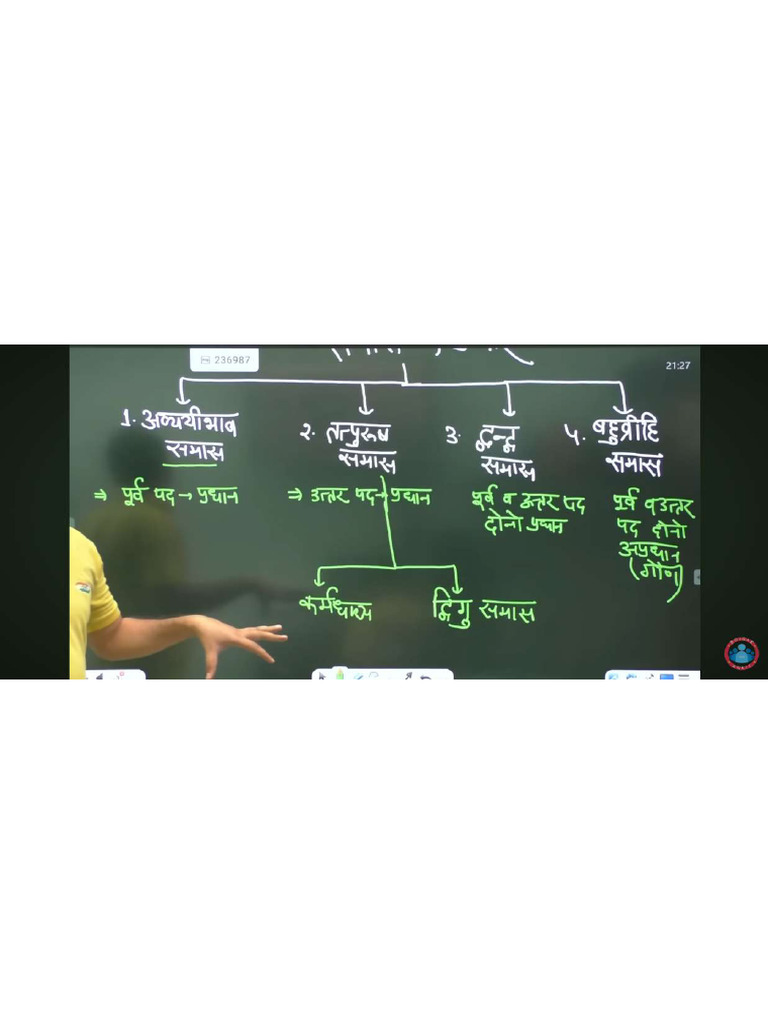 236987
21:27
1. अव्ययीभाव
समास
2. तत्पुरूष
समास
3. द्वन्द्व
समास
4. बहुव्रीहि
समास
⇒ पूर्व पद → प्रधान
⇒ उत्तर पद → प्रधान
पूर्व व उत्तर पद
दोनो प्रधान
पूर्व व उत्तर
पद दोनो
अप्रधान
(गौण)
कर्मधारय
द्विगु समास